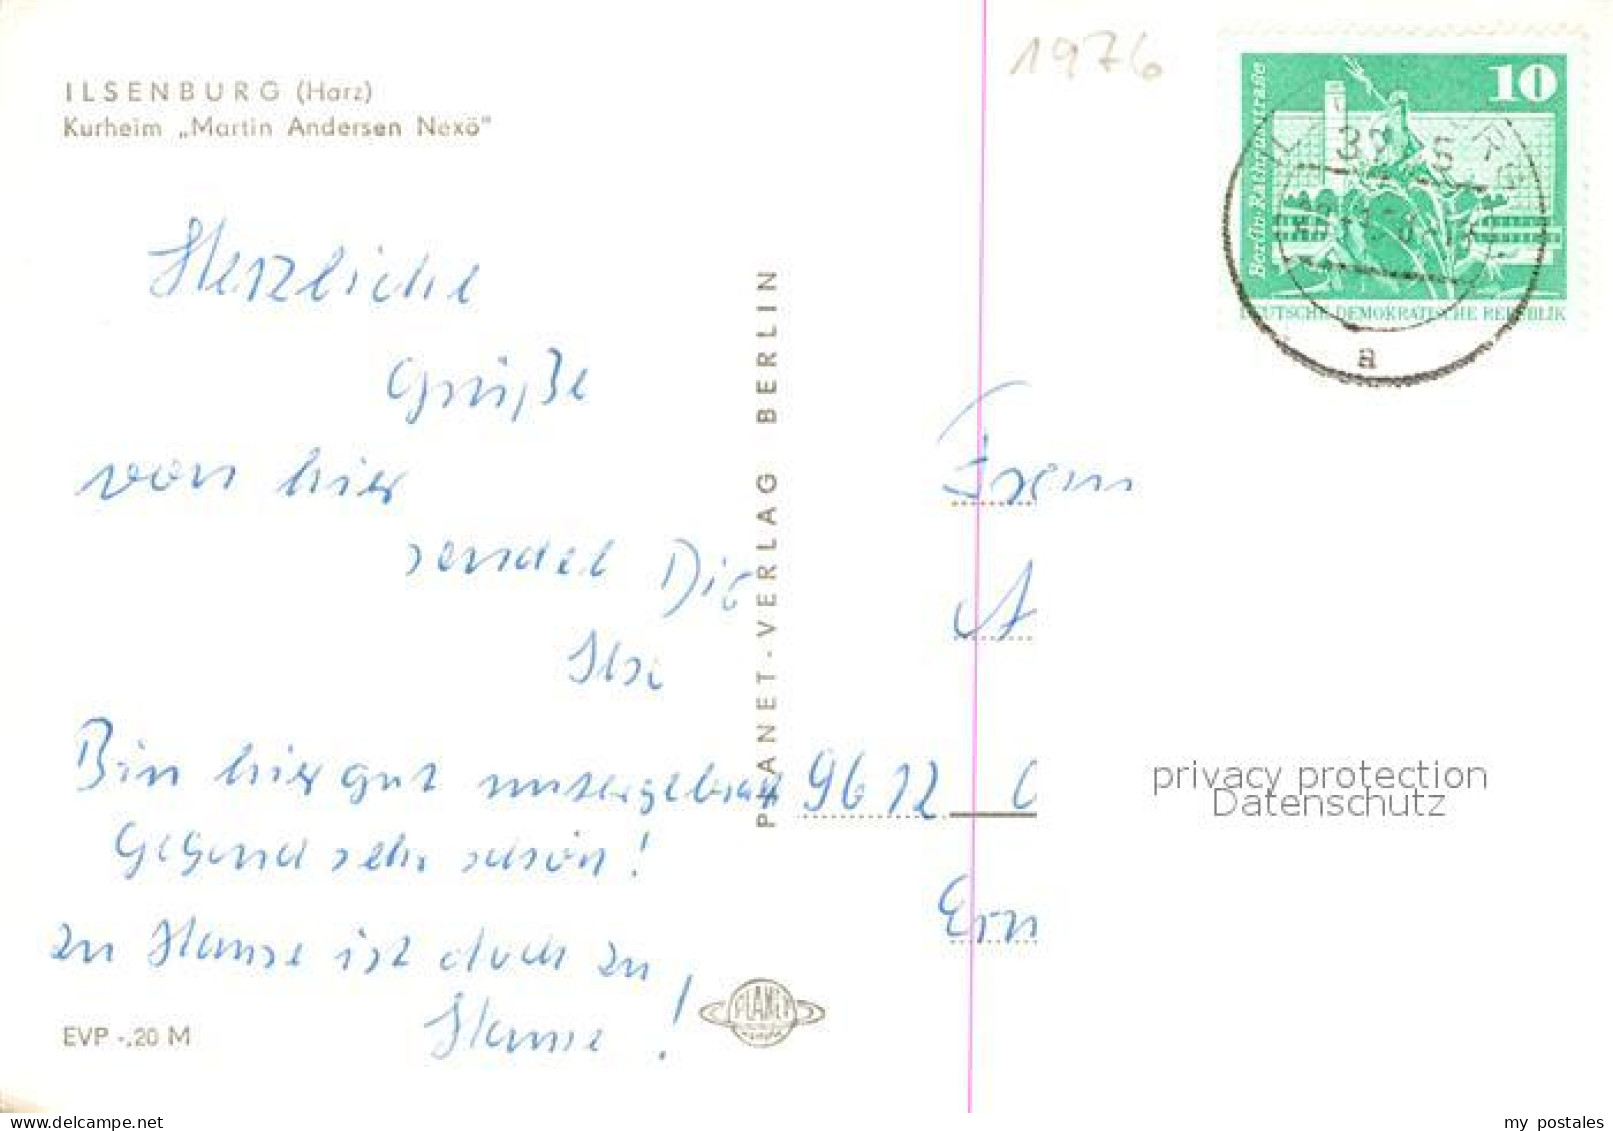 1976
ILSENBURG (Harz)
Kurheim „Martin Andersen Nexö"
10
Berlin-Rathausstraße
DEUTSCHE DEMOKRATISCHE REPUBLIK
ILSENBURG
3705
a
Herzliche
Grüße
von hier
sendet Dir
Ilse
Bin hier gut untergebracht
Gegend sehr schön!
zu Hause ist doch zu
Hause!
PLANET-VERLAG BERLIN
Frau
A
9612 C
Ern
privacy protection
Datenschutz
PLANET
EVP -.20 M
delcampe.net
my_postales